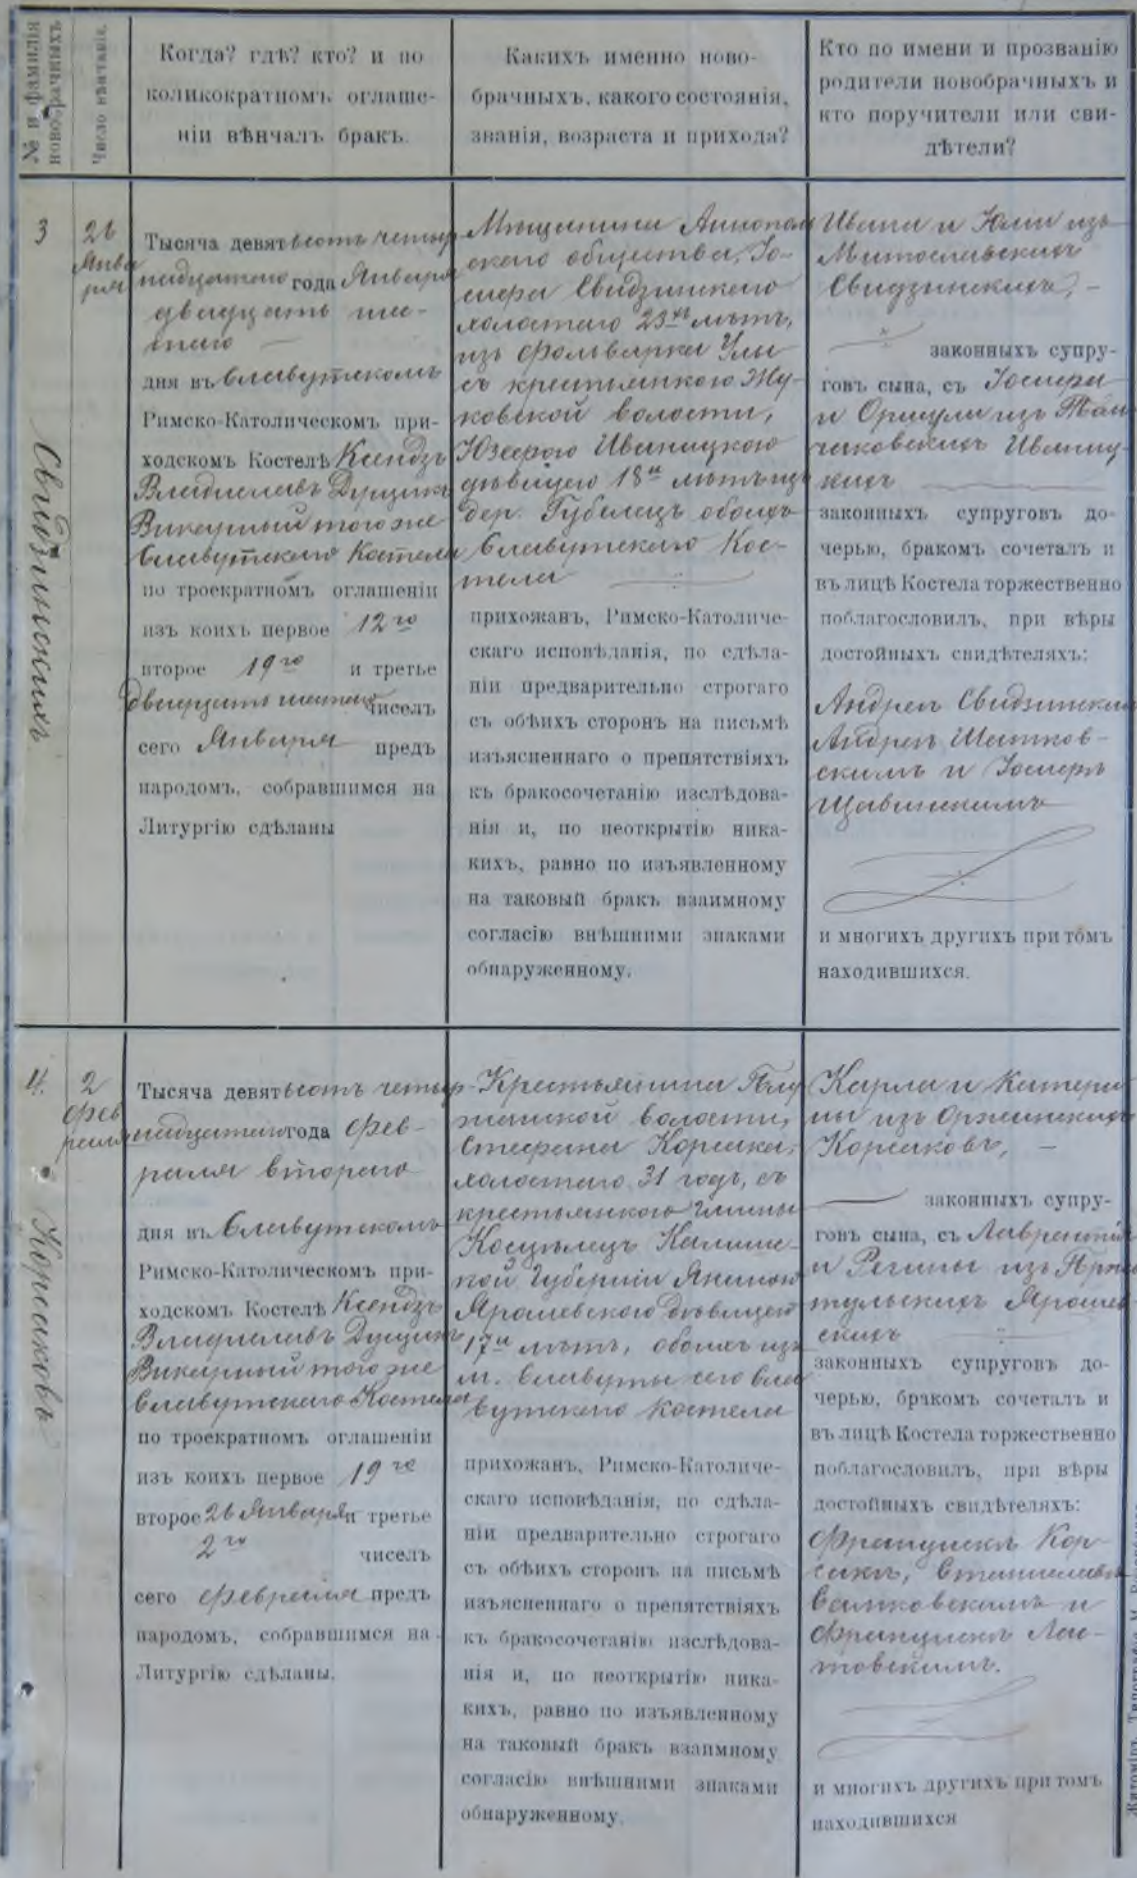 № и фамилія
новобрачныхъ
Число вѣнчанія.
Когда? гдѣ? кто? и по
коликократномъ оглаше-
ніи вѣнчалъ бракъ.
Какихъ именно ново-
брачныхъ, какого состоянія,
званія, возраста и прихода?
Кто по имени и прозванію
родители новобрачныхъ и
кто поручители или сви-
дѣтели?
3
Свидзинскихъ
26
Янва
ря
Тысяча девятьсотъ четыр
надцатаго года Января
двадцать ше-
стаго
дня въ Славутскомъ
Римско-Католическомъ при-
ходскомъ Костелѣ Ксендзъ
Владиславъ Дущикъ
Викарный того же
Славутскаго Костела
по троекратномъ оглашеніи
изъ коихъ первое 12го
второе 19го и третье
двадцать шестаго чиселъ
сего Января предъ
народомъ, собравшимся на
Литургію сдѣланы
Мѣщанина Аннополь
скаго общества, Іо-
сифа Свидзинскаго
холостаго 23хъ лѣтъ,
изъ фольварка Улы
съ крестьянкою Жу-
ковской волости,
Юзефою Иваницкою
дѣвицею 18и лѣтъ изъ
дер. Губелецъ обоихъ
Славутскаго Кос-
тела
прихожанъ, Римско-Католиче-
скаго исповѣданія, по сдѣла-
ніи предварительно строгаго
съ обѣихъ сторонъ на письмѣ
изъясненнаго о препятствіяхъ
къ бракосочетанію изслѣдова-
нія и, по неоткрытію ника-
кихъ, равно по изъявленному
на таковый бракъ взаимному
согласію внѣшними знаками
обнаруженному.
Ивана и Юліи изъ
Свидзинскихъ, -
законныхъ супру-
говъ сына, съ Іосифа
и Оршули изъ
Иваниц-
кихъ
законныхъ супруговъ до-
черью, бракомъ сочеталъ и
въ лицѣ Костела торжественно
поблагословилъ, при вѣры
достойныхъ свидѣтеляхъ:
Андреѣ Свидзинскомъ
Андреѣ Шатков-
скимъ и Іосифѣ
Щавинскимъ
и многихъ другихъ при томъ
находившихся.
4.
Корсаковъ
2
Фев
раля
Тысяча девятьсотъ четыр-
надцатаго года Фев-
раля втораго
дня въ Славутскомъ
Римско-Католическомъ при-
ходскомъ Костелѣ Ксендзъ
Владиславъ Дущикъ
Викарный того же
Славутскаго Костела
по троекратномъ оглашеніи
изъ коихъ первое 19го
второе 26 Января и третье
2го чиселъ
сего Февраля предъ
народомъ, собравшимся на
Литургію сдѣланы.
Крестьянина Плу
жанской волости,
Стефана Корсака,
холостаго 31 годъ, съ
крестьянкою гмины
Косцѣлецъ Калиш-
кой губерніи Яниною
Ярошевскою дѣвицею
17и лѣтъ, обоихъ изъ
м. Славуты сего Сла
вутскаго Костела
прихожанъ, Римско-Католиче-
скаго исповѣданія, по сдѣла-
ніи предварительно строгаго
съ обѣихъ сторонъ на письмѣ
изъясненнаго о препятствіяхъ
къ бракосочетанію изслѣдова-
нія и, по неоткрытію ника-
кихъ, равно по изъявленному
на таковый бракъ взаимному
согласію внѣшними знаками
обнаруженному.
Карла и Катери
ны изъ Оржинскихъ
Корсаковъ, -
законныхъ супру-
говъ сына, съ Лаврентія
и Регины изъ
Ярошев
скихъ
законныхъ супруговъ до-
черью, бракомъ сочеталъ и
въ лицѣ Костела торжественно
поблагословилъ, при вѣры
достойныхъ свидѣтеляхъ:
Францискѣ Кор-
сакѣ, Станиславѣ
Сатковскимъ и
Францискѣ Лас-
товскимъ.
и многихъ другихъ при томъ
находившихся